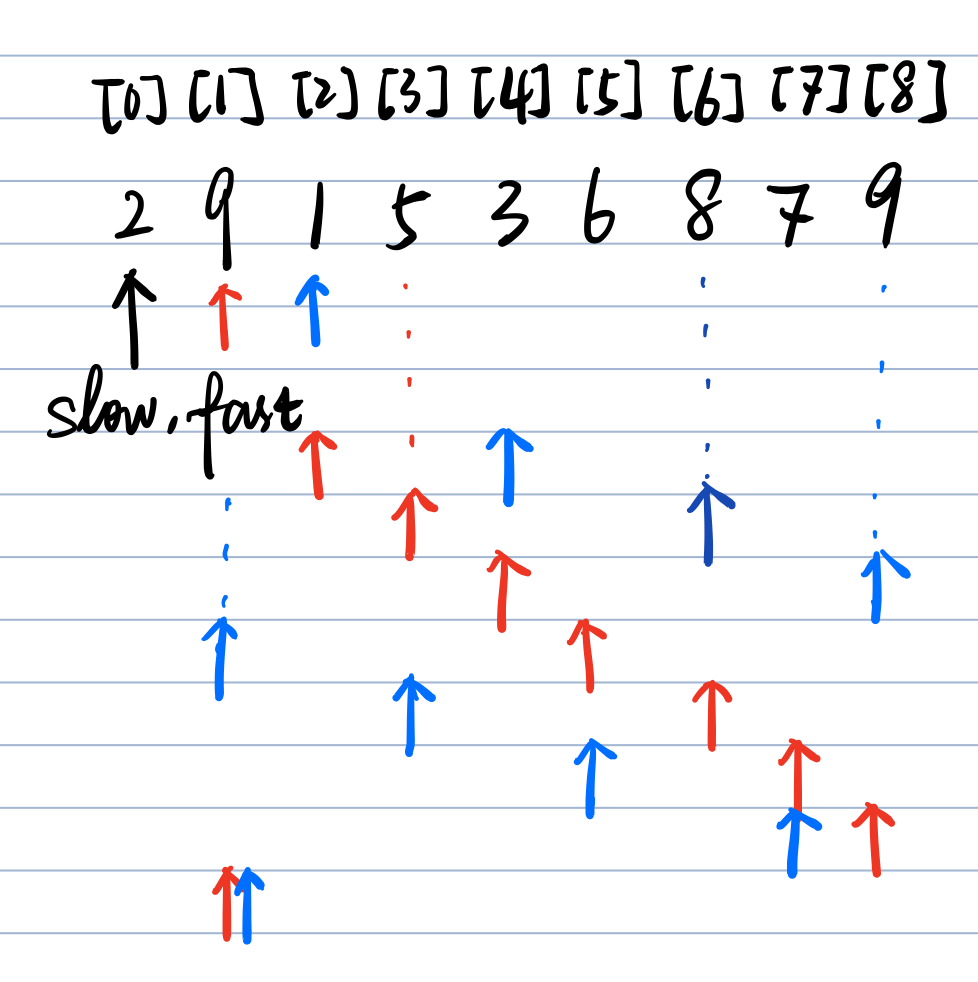 [0] [1] [2] [3] [4] [5] [6] [7] [8]
2 9 1 5 3 6 8 7 9
slow, fast